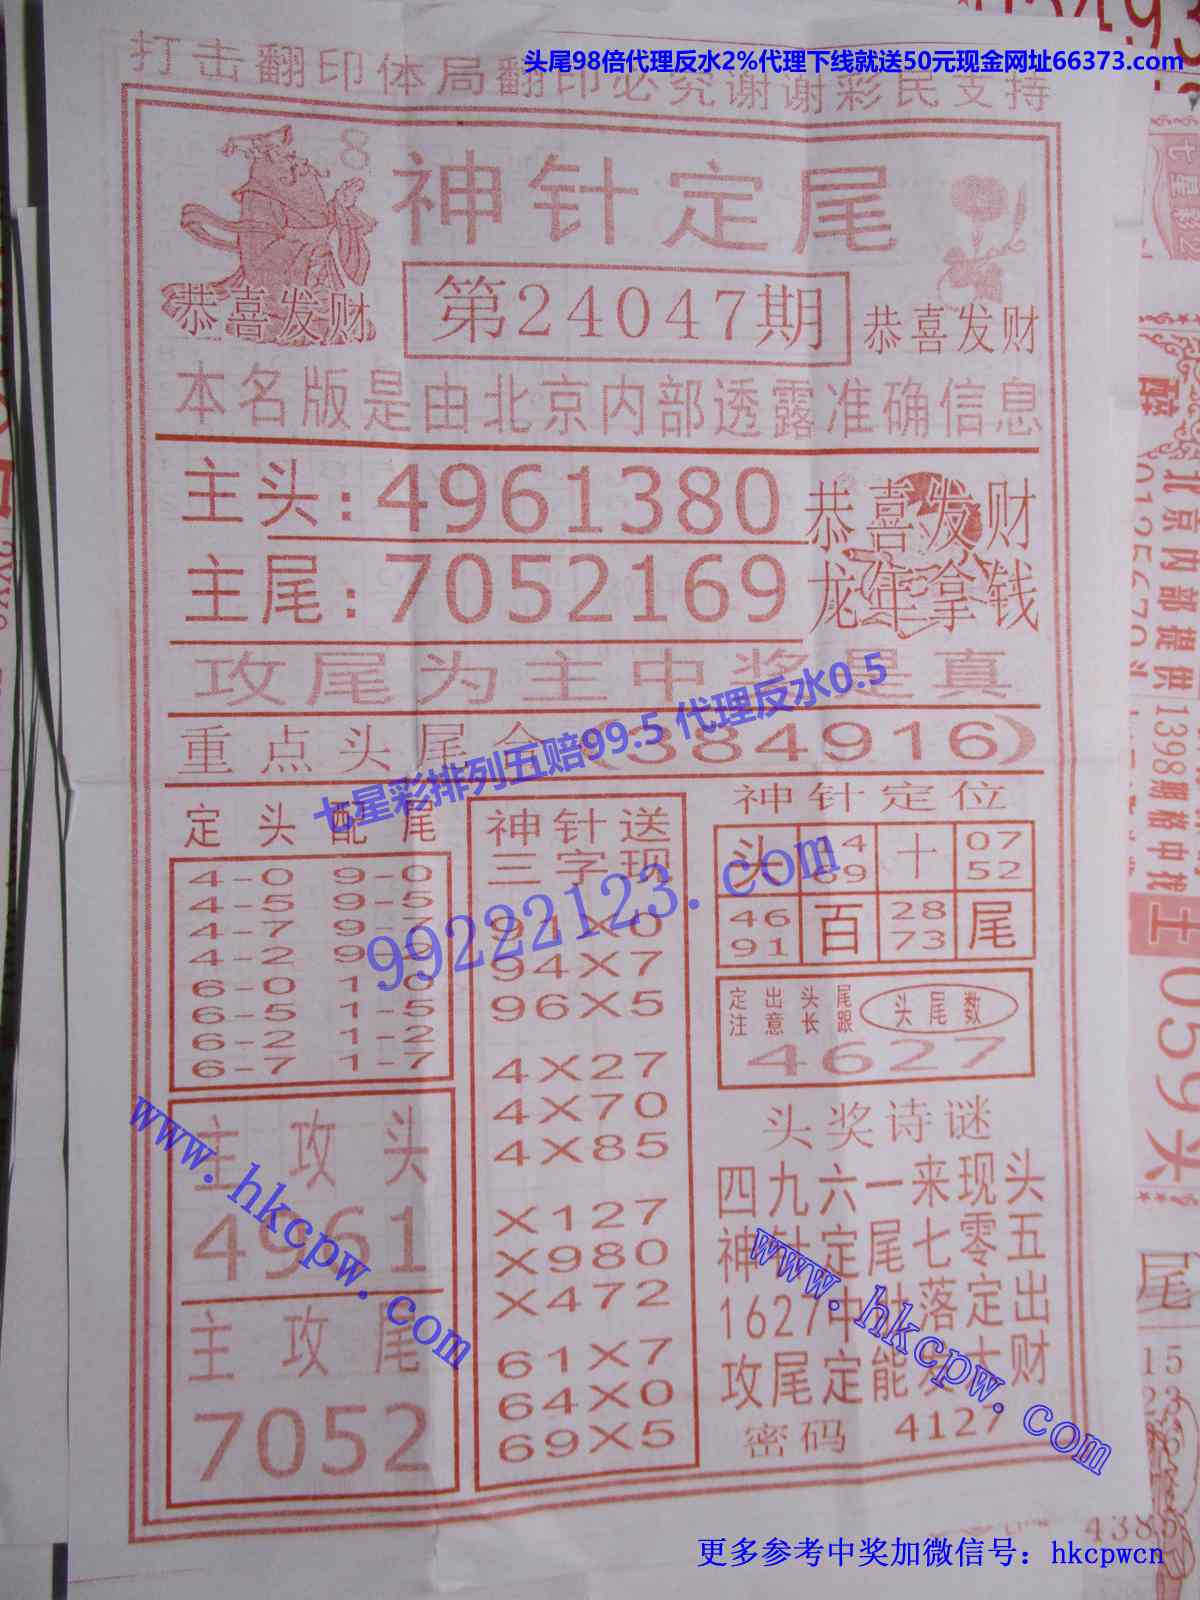 头尾98倍代理反水2%代理下线就送50元现金网址66373.com
打击翻印体局翻印必究谢谢彩民支持
8
神针定尾
恭喜发财
第24047期
恭喜发财
本名版是由北京内部透露准确信息
主头:4961380
恭喜发财
主尾:7052169
龙年拿钱
攻尾为主中奖是真
七星彩排列五赔99.5 代理反水0.5
重点头尾合(384916)
定头配尾
4-0 9-0
4-5 9-5
4-7 9-7
4-2 9-2
6-0 1-0
6-5 1-5
6-2 1-2
6-7 1-7
99222123.com
神针送
三字现
94X0
94X7
96X5
4X27
4X70
4X85
X127
X980
X472
61X7
64X0
69X5
神针定位
头 14 十 07
69 52
46 百 28 尾
91 73
定出头尾
注意长跟
头尾数
4627
主攻头
4961
主攻尾
7052
www.hkcpw.com
头奖诗谜
四九六一来现头
神针定尾七零五
1627中时落定出
攻尾定能发大财
密码 4127
www.hkcpw.com
更多参考中奖加微信号：hkcpwcn
七星彩
北京内部提供1398期格中找
主059头
尾
15
23
4385